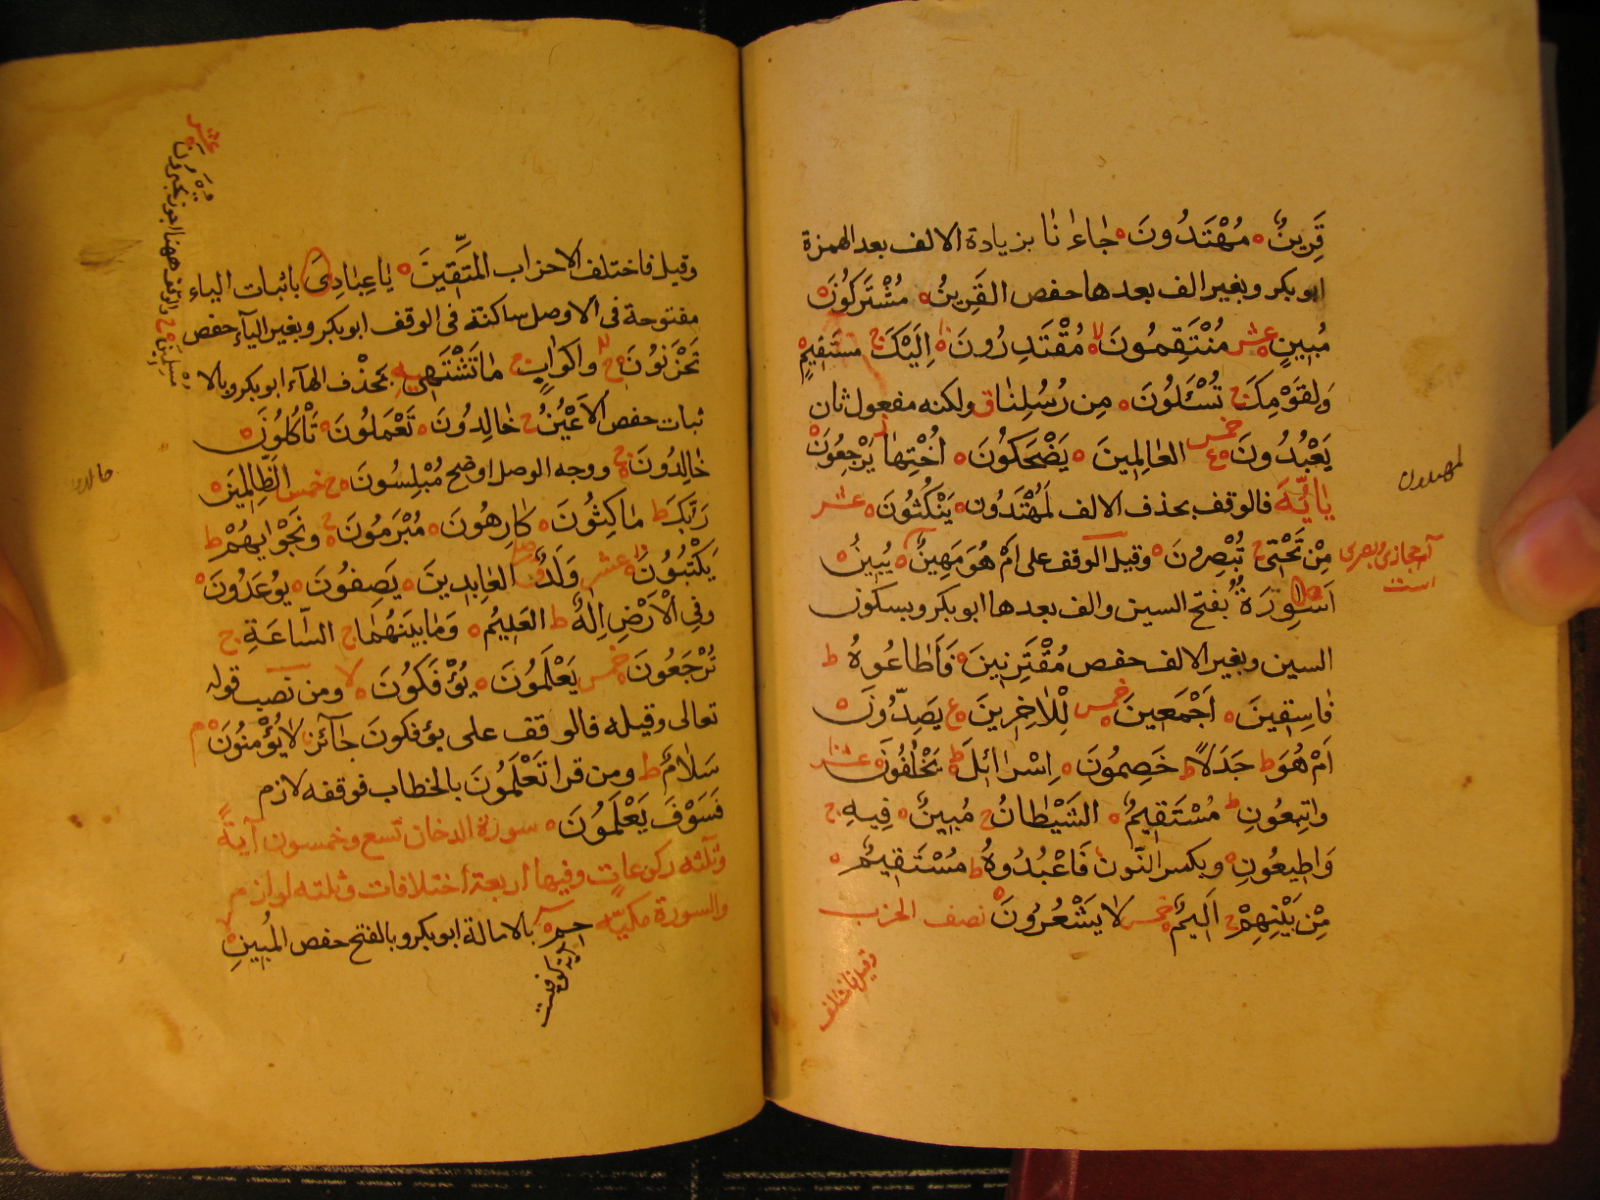 قَرِينٌ ه مُهْتَدُونَ ه جٰاءٰ نٰا بزيادة الالف بعد الهمزة
ابوبكر وبغير الف بعدها حفص القَرِينُ ه مُشْتَرِكُونَ ه
مُبِينٍ ه عشر مُنْتَقِمُونَ لا مُقْتَدِرُونَ ه اِلَيْكَ ج مستَقِيمٍ ه
وَلِقَوْمِكَ ج تُسْـَٔلُونَ ه مِن رُسُلِنٰا ق ولكنه مفعول ثان
يَعْبُدُونَ ه ع خمس العٰالَمِينَ ه يَضْحَكُونَ ه اُخْتِهٰا ز يَرْجِعُونَ ه
يٰاَيُّهَ فالوقف بحذف الالف لَمُهْتَدُون ه يَنْكُثُونَ ه عشر
مِنْ تَحْتِي ج تُبْصِرُونَ ه وقيل الوقف على اَمْ هُوَ مَهِينٌ ه يُبِينُ ه
آ حجازى بصرى است
لمهتدون
اَسٰوِرَةٌ بفتح السين والف بعدها ابوبكر وبسكون
السين وبغير الالف حفص مُقْتَرِنِينَ ه فَاَطٰاعُوهُ ط
فٰاسِقِينَ ه اَجْمَعِينَ ه خمس لِلْاٰخِرِينَ ه ع يَصِدُّونَ ه
اَمْ هُوَ ط جَدَلاً ط خَصِمُونَ ه اِسْرٰائِلَ ط يَخْلُفُونَ ه عشر
واتبِعُونِ ط مُسْتَقِيمٌ ه الشَيْطٰانُ ج مُبِينٌ ه فِيهِ ج
وَاطِيعُونِ ه وبكسر النون فَاعْبُدُوهُ ط مُسْتَقِيمٌ ه
مِنْ بَيْنِهِمْ ج اَلِيمٌ ه خمس لا يَشْعُرُونَ ه نصف الحزب
وقيل فاختلف
وقيل فاختلف الاحزاب المتَّقِينَ ه يٰاعِبٰادِىَ باثبات الياء
مفتوحة فى الاوصل ساكنة فى الوقف ابوبكر وبغير اليآء حفص
تَحْزَنُونَ ه ج واَكوَابٍ ج مٰاتَشْتَهِي ه بحذف الهآء ابوبكر وبالا
ثبات حفص الاَعْيُنُ ج خٰالِدُونَ ه تَعْمَلُونَ ه تَأْكُلُونَ ه
خٰالِدُونَ ه ج ووجه الوصل اوضح مُبْلِسُونَ ه ج خمس الظّٰلِمِينَ ه
رَبُّكَ ط مٰاكِثُونَ ه كٰارِهُونَ ه مُبْرِمُونَ ه ج ونَجْوٰيهُمْ ط
يَكْتُبُونَ ه عشر وَلَدٌ العٰابِدِينَ ه يَصِفُونَ ه يوُعَدُونَ ه
وفِي الْاَرْضِ اِلٰهٌ ط العَلِيمُ ه وَمٰا بَيْنَهُمٰا ج السّٰاعَةِ ج
تُرْجَعُونَ ه خمس يَعْلَمُونَ ه يُؤْفَكُونَ ه لا ومن نصب قوله
تعالى وقيله فالوقف على يؤفكون جٰآئز لا يُؤْمِنُونَ ه م
سَلامٌ ط ومن قرا تَعْلَمُونَ بالخطاب فوقفه لازم
فَسَوْفَ يَعْلَمُونَ ه سورة الدخان تسع وخمسون آيةً
وثلثه ركوعاتٍ وفيها اربعة اختلافات وثلثه لوازم
والسورة مكيّة حم ه بالامالة ابوبكر وبالفتح حفص المُبِينِ ه
آية كوفيست